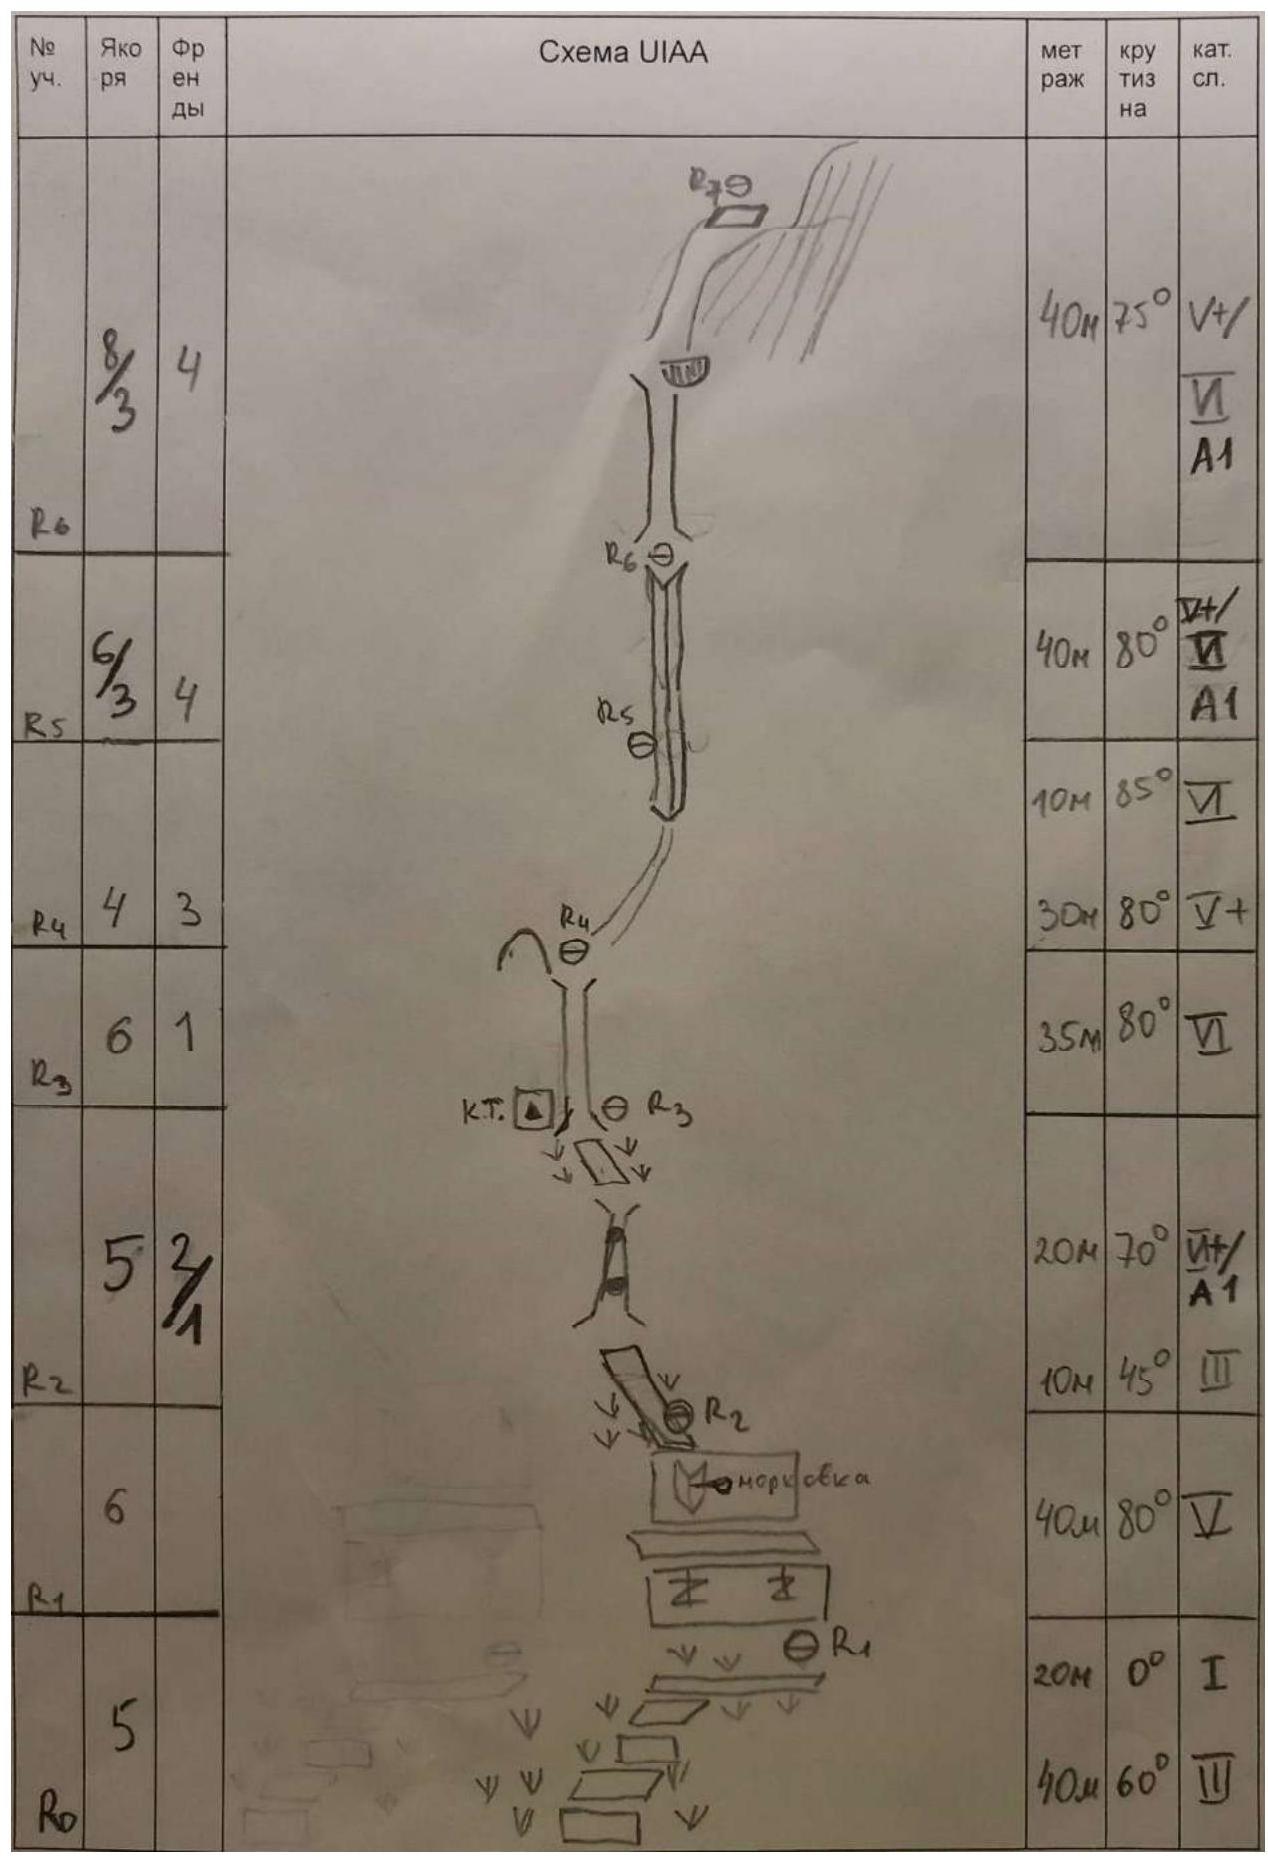 № уч.
Яко ря
Фр ен ды
Схема UIAA
мет раж
кру тиз на
кат. сл.
R7
40м 75° V+/
VI
A1
8/3 4
R6
R6
40м 80° V+/
VI
A1
6/3 4
R5
R5
10м 85° VI
R4 4 3
R4
30м 80° V+
6 1
35м 80° VI
R3
К.Т.
R3
5 2/1
20м 70° VI+/
A1
R2
10м 45° III
R2
морковка
6
40м 80° V
R1
R1
20м 0° I
5
40м 60° III
R0